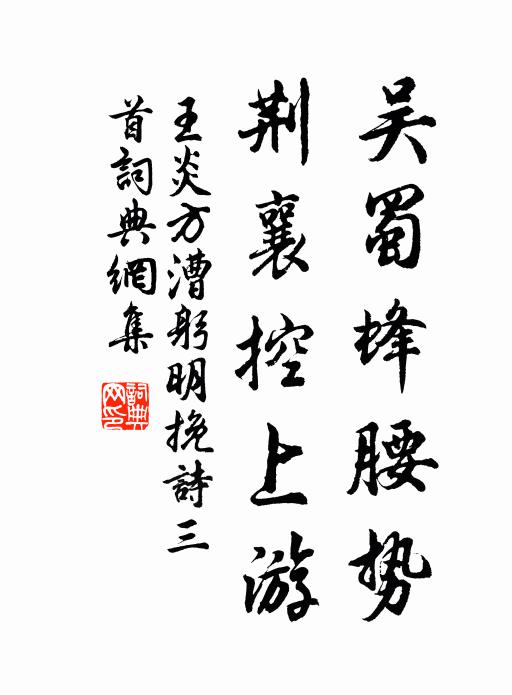 吴蜀蜂腰势
荆襄控上游
王炎方漕躬明挽詩三
首詞典網集
詞典网印